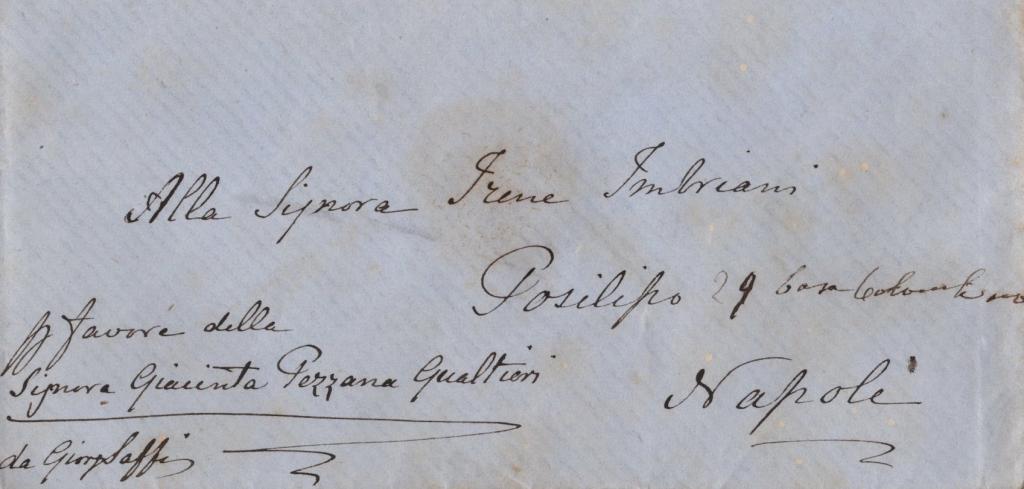 Alla Signora Irene Imbriani
Posilipo 29 Casa
p favore della
Signora Giacinta Pezzana Gualtieri
Napoli
da Giorg Saffi